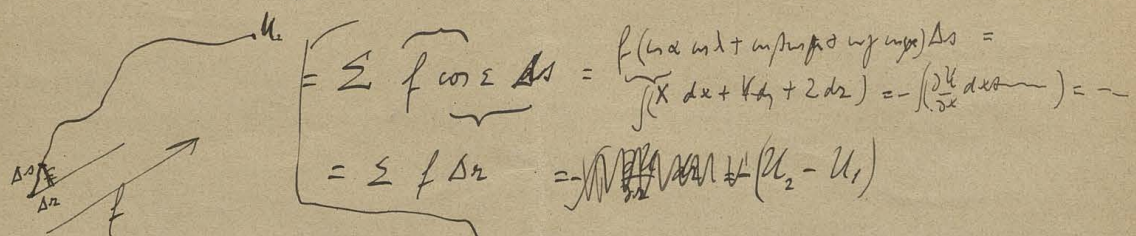 U₂
= Σ f cos ε Δs = f(cos α cos λ + cos β cos μ + cos γ cos ν) Δs =
∫(X dx + Y dy + Z dz) = -∫(∂U/∂x dx + ) = -
Δs ε
Δr
f
= Σ f Δr = - (U₂ - U₁)